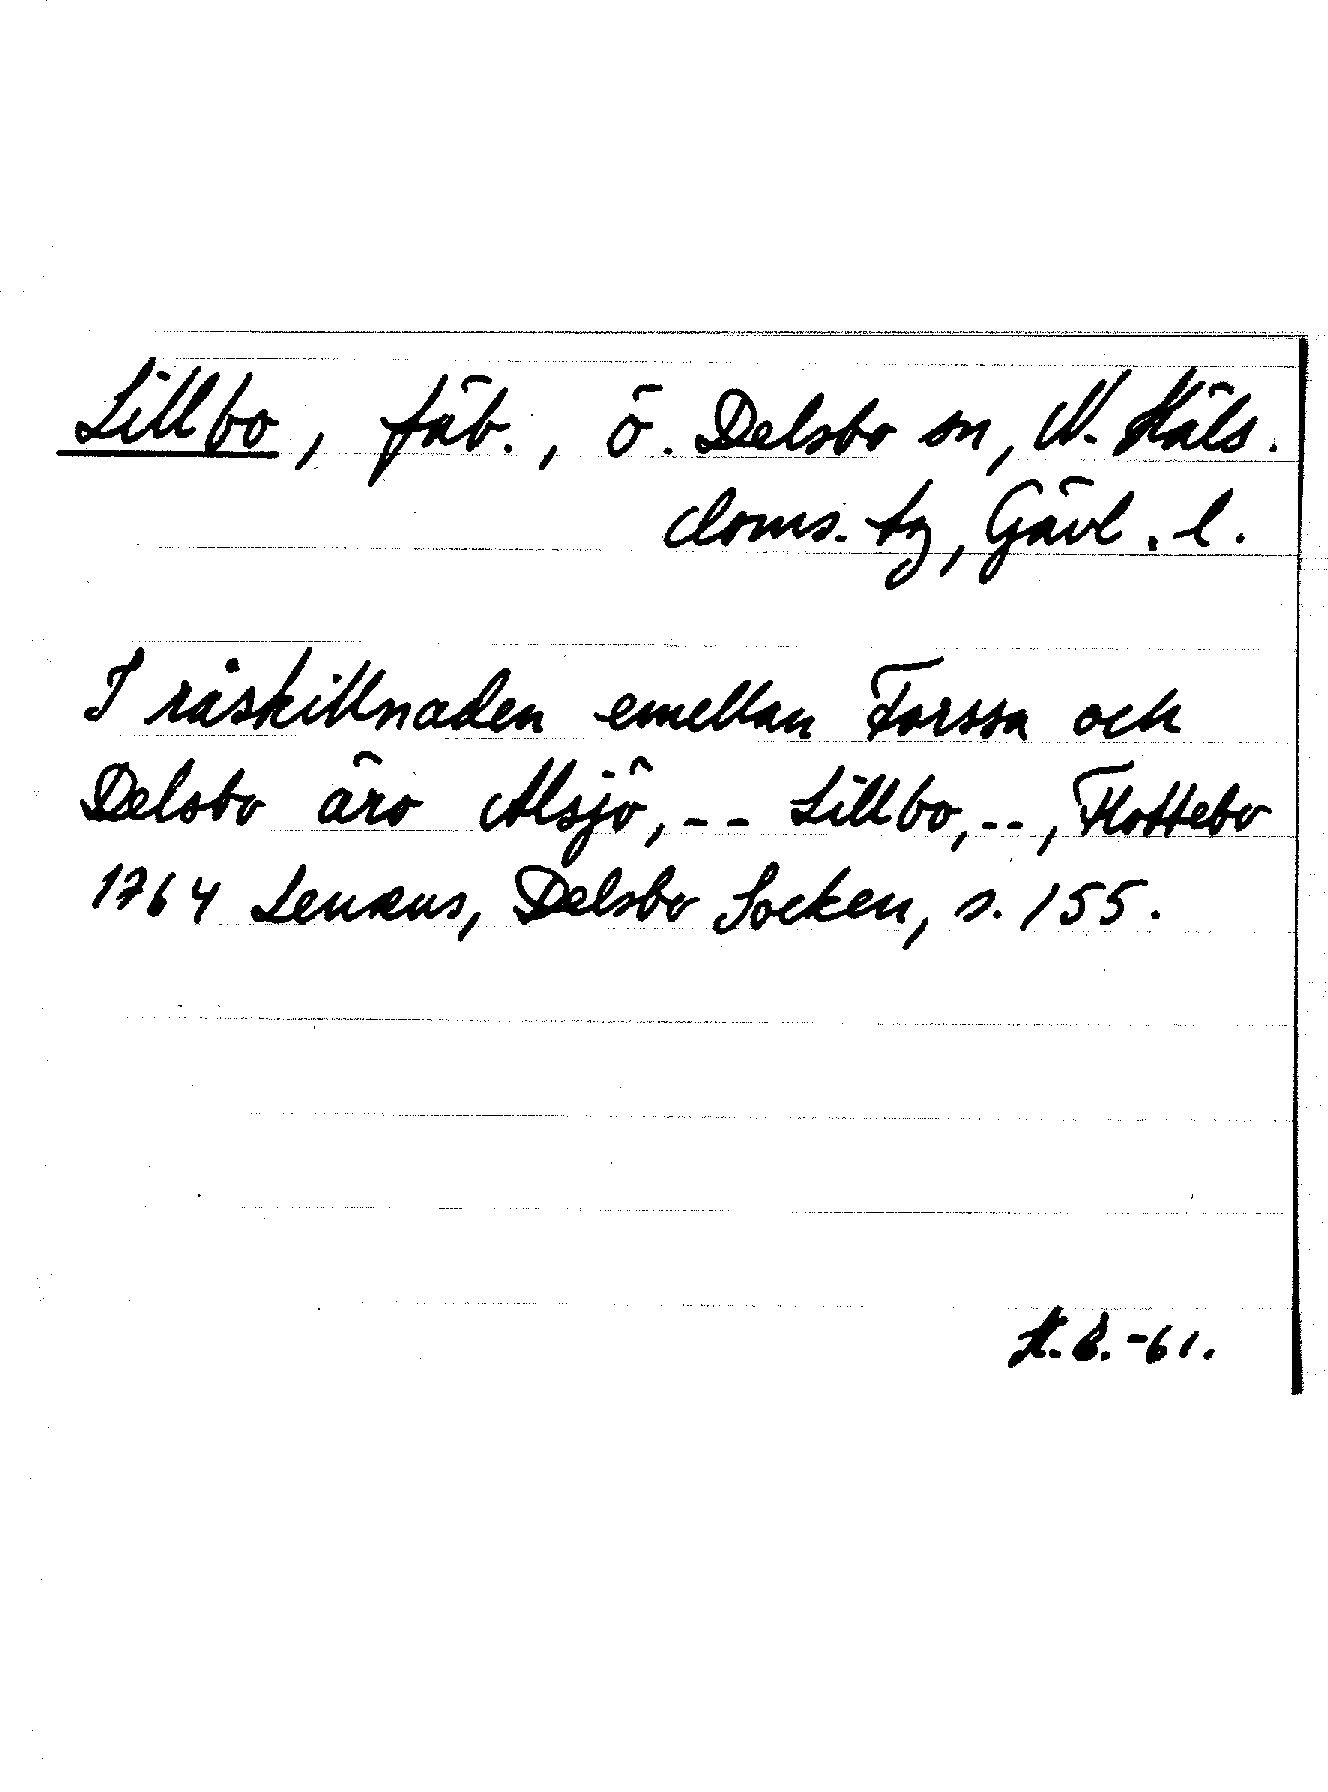 Lillbo, fäb., ö. Delsbo sn, N. Häls.
doms. tg, Gävl. l.
I råskillnaden emellan Forssa och
Delsbo äro Alsjö, -- Lillbo, --, Flottebo
1764 Lenæus, Delsbo Socken, s. 155.
H.B.-61.